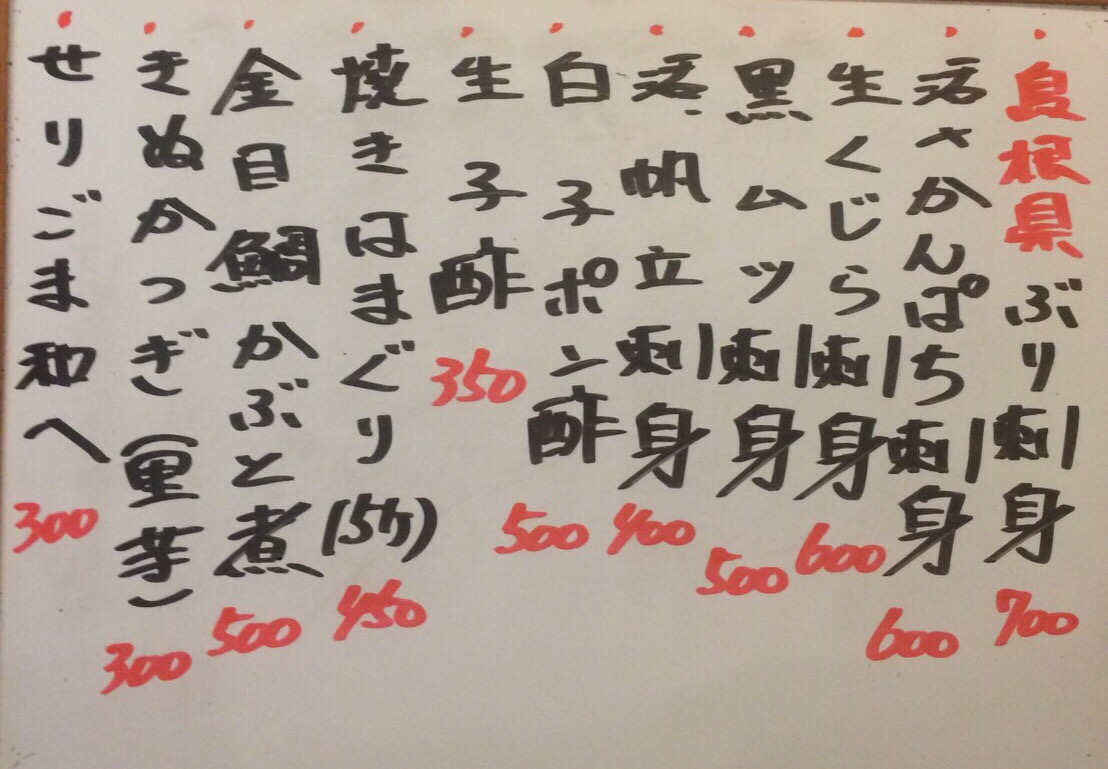 島根県ぶり刺身 700
活さかんぱち刺身 600
生くじら刺身 600
黒ムツ刺身 500
活帆立刺身 400
白子ポン酢 500
生子酢 350
焼きはまぐり(5ケ) 450
金目鯛かぶと煮 500
きぬかつぎ(里芋) 300
せりごま和へ 300